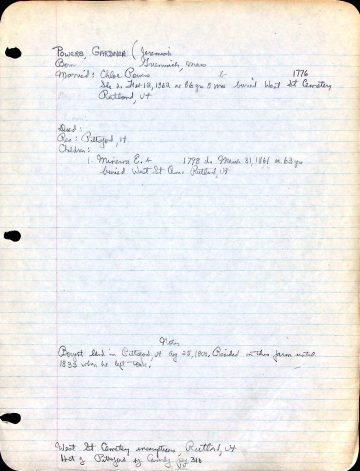 POWERS, GARDNER (Jeremiah
Born Greenwich, Mass
Married: Chloe Powers b 1776
She d. Feb 12, 1862 ae 86 yrs 5 mos buried West St Cemetery
Rutland, Vt
Died:
Res: Pittsford, Vt
Children:
1. Minerva E. b 1798 d. March 31, 1861 ae 63 yrs
buried West St Cem. Rutland, Vt
Notes
Bought land in Pittsford, Vt Aug 25, Resided on this farm until
1835 when he left town.
West St Cemetery inscriptions Rutland, Vt
Hist of Pittsford by Caverly pg